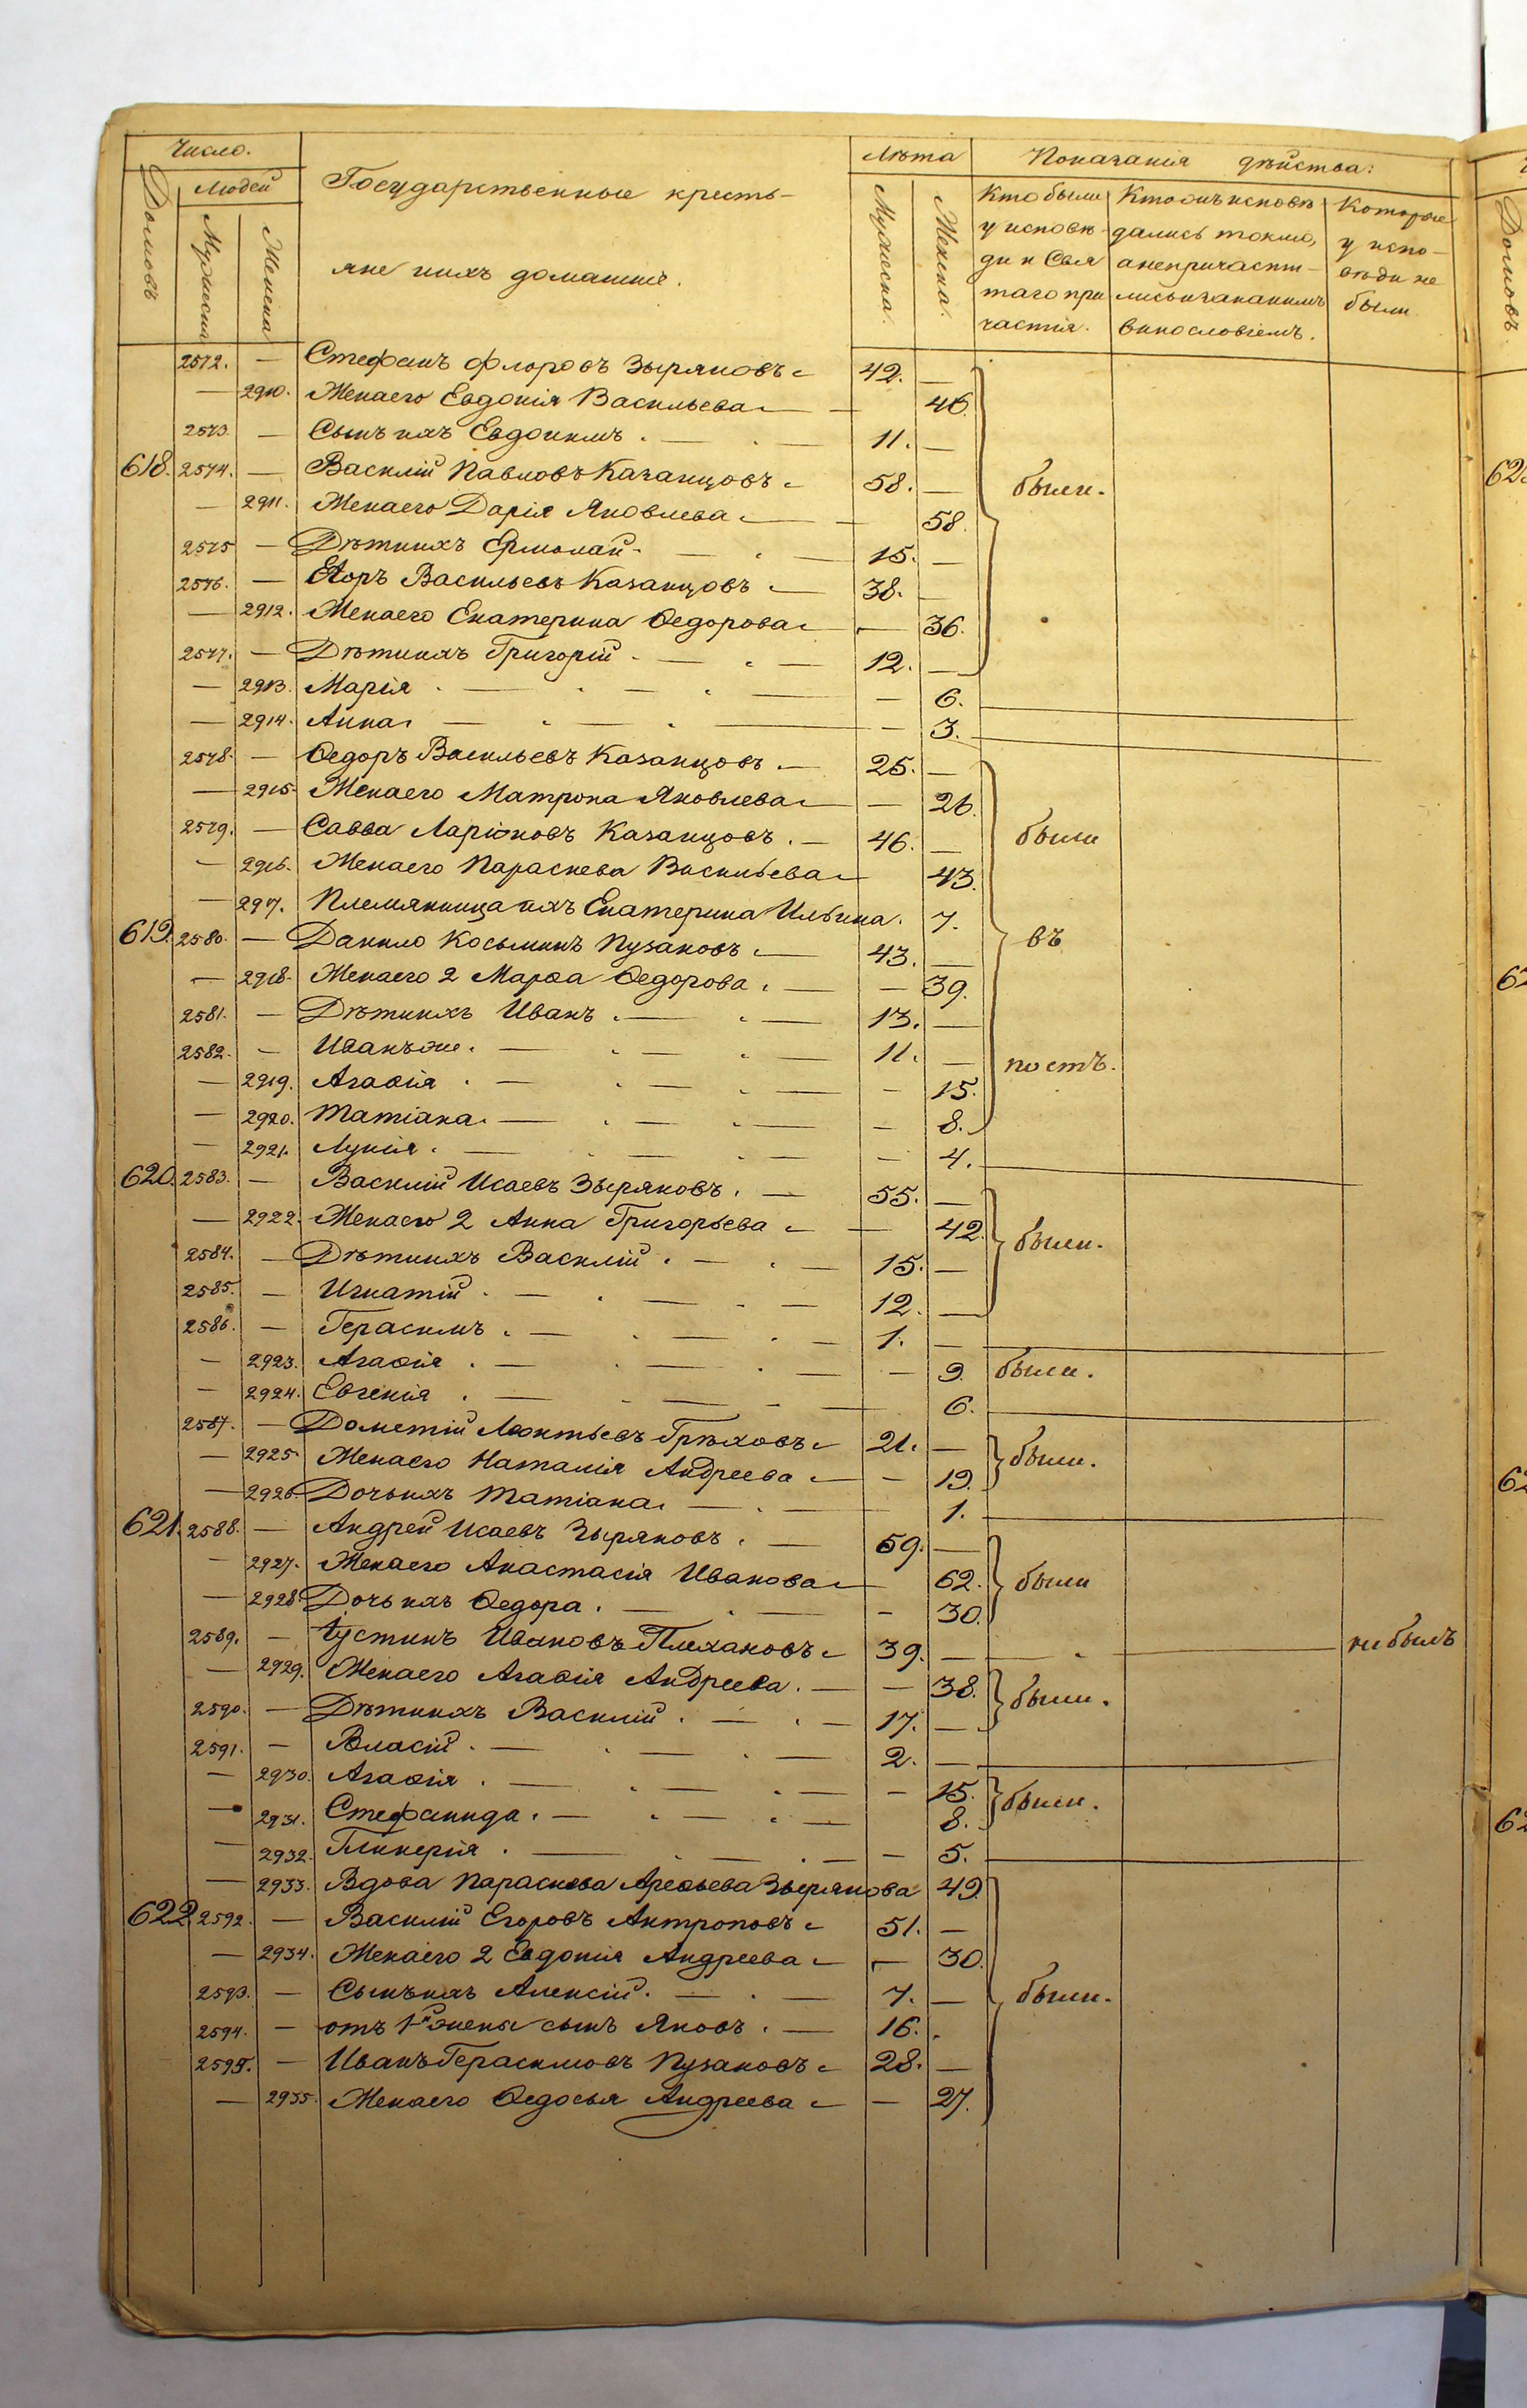 Число.
Домовъ
Людей
Мужеска
Женска
Государственные кресть-
яне ихъ домашніе.
Лѣта
Мужеска.
Женска.
Показанія дѣйства:
Кто были у исповѣди и Свя таго при частія.
Кто онъ исповѣ дались токмо, а непричасти- лись и за какимъ винословіемъ.
Которые у испо- вѣди не были
2572. — Стефанъ Флоровъ Зыряновъ 42. —
— 2910. Жена его Евдокія Васильева — 46.
2573. — Сынъ ихъ Евдокимъ. 11. —
618. 2574. — Василій Павловъ Казанцовъ 58. — были.
— 2911. Жена его Дарія Яковлева — 58.
2575 — Дѣти ихъ Ермолай. 15. —
2576. — Егоръ Васильевъ Казанцовъ 38. —
— 2912. Жена его Екатерина Ѳедорова — 36.
2577. — Дѣти ихъ Григорій. 12. —
— 2913. Марія. — 6.
— 2914. Анна. — 3.
2578. — Ѳедоръ Васильевъ Казанцовъ. 25. —
— 2915. Жена его Матрона Яковлева — 26.
2579. — Савва Ларіоновъ Казанцовъ. 46. — были
— 2916. Жена его Параскева Васильева 43.
— 2917. Племянница ихъ Екатерина Ильина. 7.
619. 2580. — Данило Косьминъ Пузановъ 43. — въ
— 2918. Жена его 2 Марѳа Ѳедорова. — 39.
2581. — Дѣти ихъ Иванъ. 13. —
2582. — Иванъ же. 11. — постъ.
— 2919. Агаѳія. — 15.
— 2920. Татіана. — 8.
— 2921. Лукія. — 4.
620. 2583. — Василій Исаевъ Зыряновъ. 55. —
— 2922. Жена его 2 Анна Григорьева — 42. были.
2584. — Дѣти ихъ Василій. 15. —
2585. — Игнатій. 12. —
2586. — Герасимъ. 1. —
— 2923. Агаѳія. — 9. были.
— 2924. Евгенія. — 6.
2587. — Дометій Леонтьевъ Грѣховъ 21. — были.
— 2925. Жена его Наталія Андреева — 19.
— 2926. Дочь ихъ Татіана. — 1.
621. 2588. — Андрей Исаевъ Зыряновъ. 59. —
— 2927. Жена его Анастасія Иванова — 62. были
— 2928. Дочь ихъ Ѳедора. — 30.
2589. — Іустинъ Ивановъ Плехановъ 39. — не былъ
— 2929. Жена его Агаѳія Андреева. — 38. были.
2590. — Дѣти ихъ Василій. 17. —
2591. — Власій. 2. —
— 2930. Агаѳія. — 15. были.
— 2931. Стефанида. 8.
— 2932. Гликерія. — 5.
— 2933. Вдова Параскева Арефьева Зырянова 49.
622. 2592. — Василій Егоровъ Антроповъ 51. —
— 2934. Жена его 2 Евдокія Андреева — 30.
2593. — Сынъ ихъ Алексій. 7. — были.
2594. — отъ 1й жены сынъ Яковъ. 16.
2595. — Иванъ Герасимовъ Пузановъ 28. —
— 2935. Жена его Ѳедосья Андреева — 27.
Домовъ